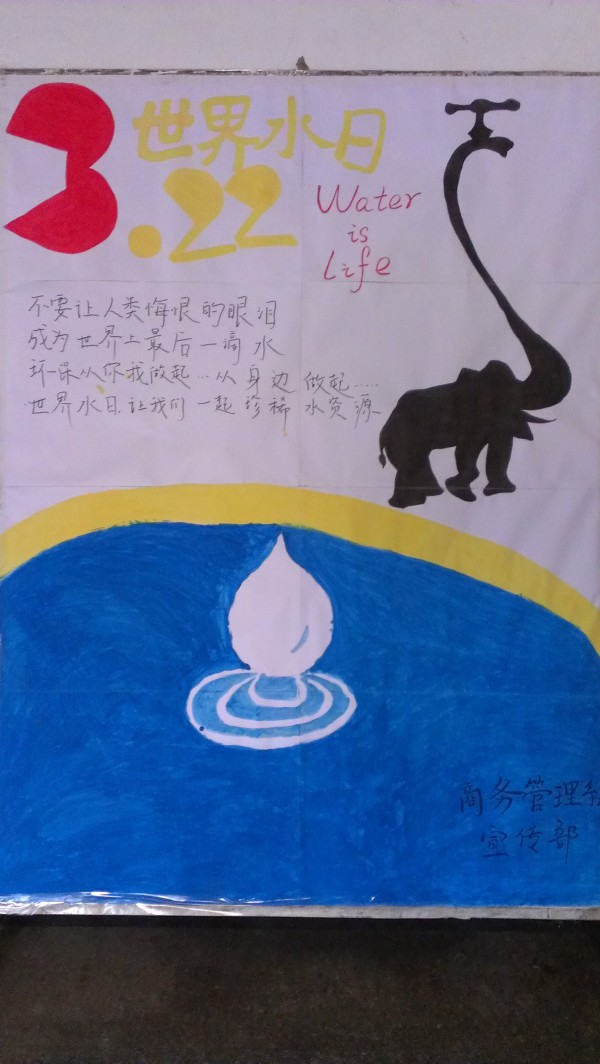 世界水日
3.22
Water
is
Life
不要让人类悔恨的眼泪
成为世界上最后一滴水
环保从你我做起...从身边做起.....
世界水日.让我们一起珍稀水资源
商务管理系
宣传部